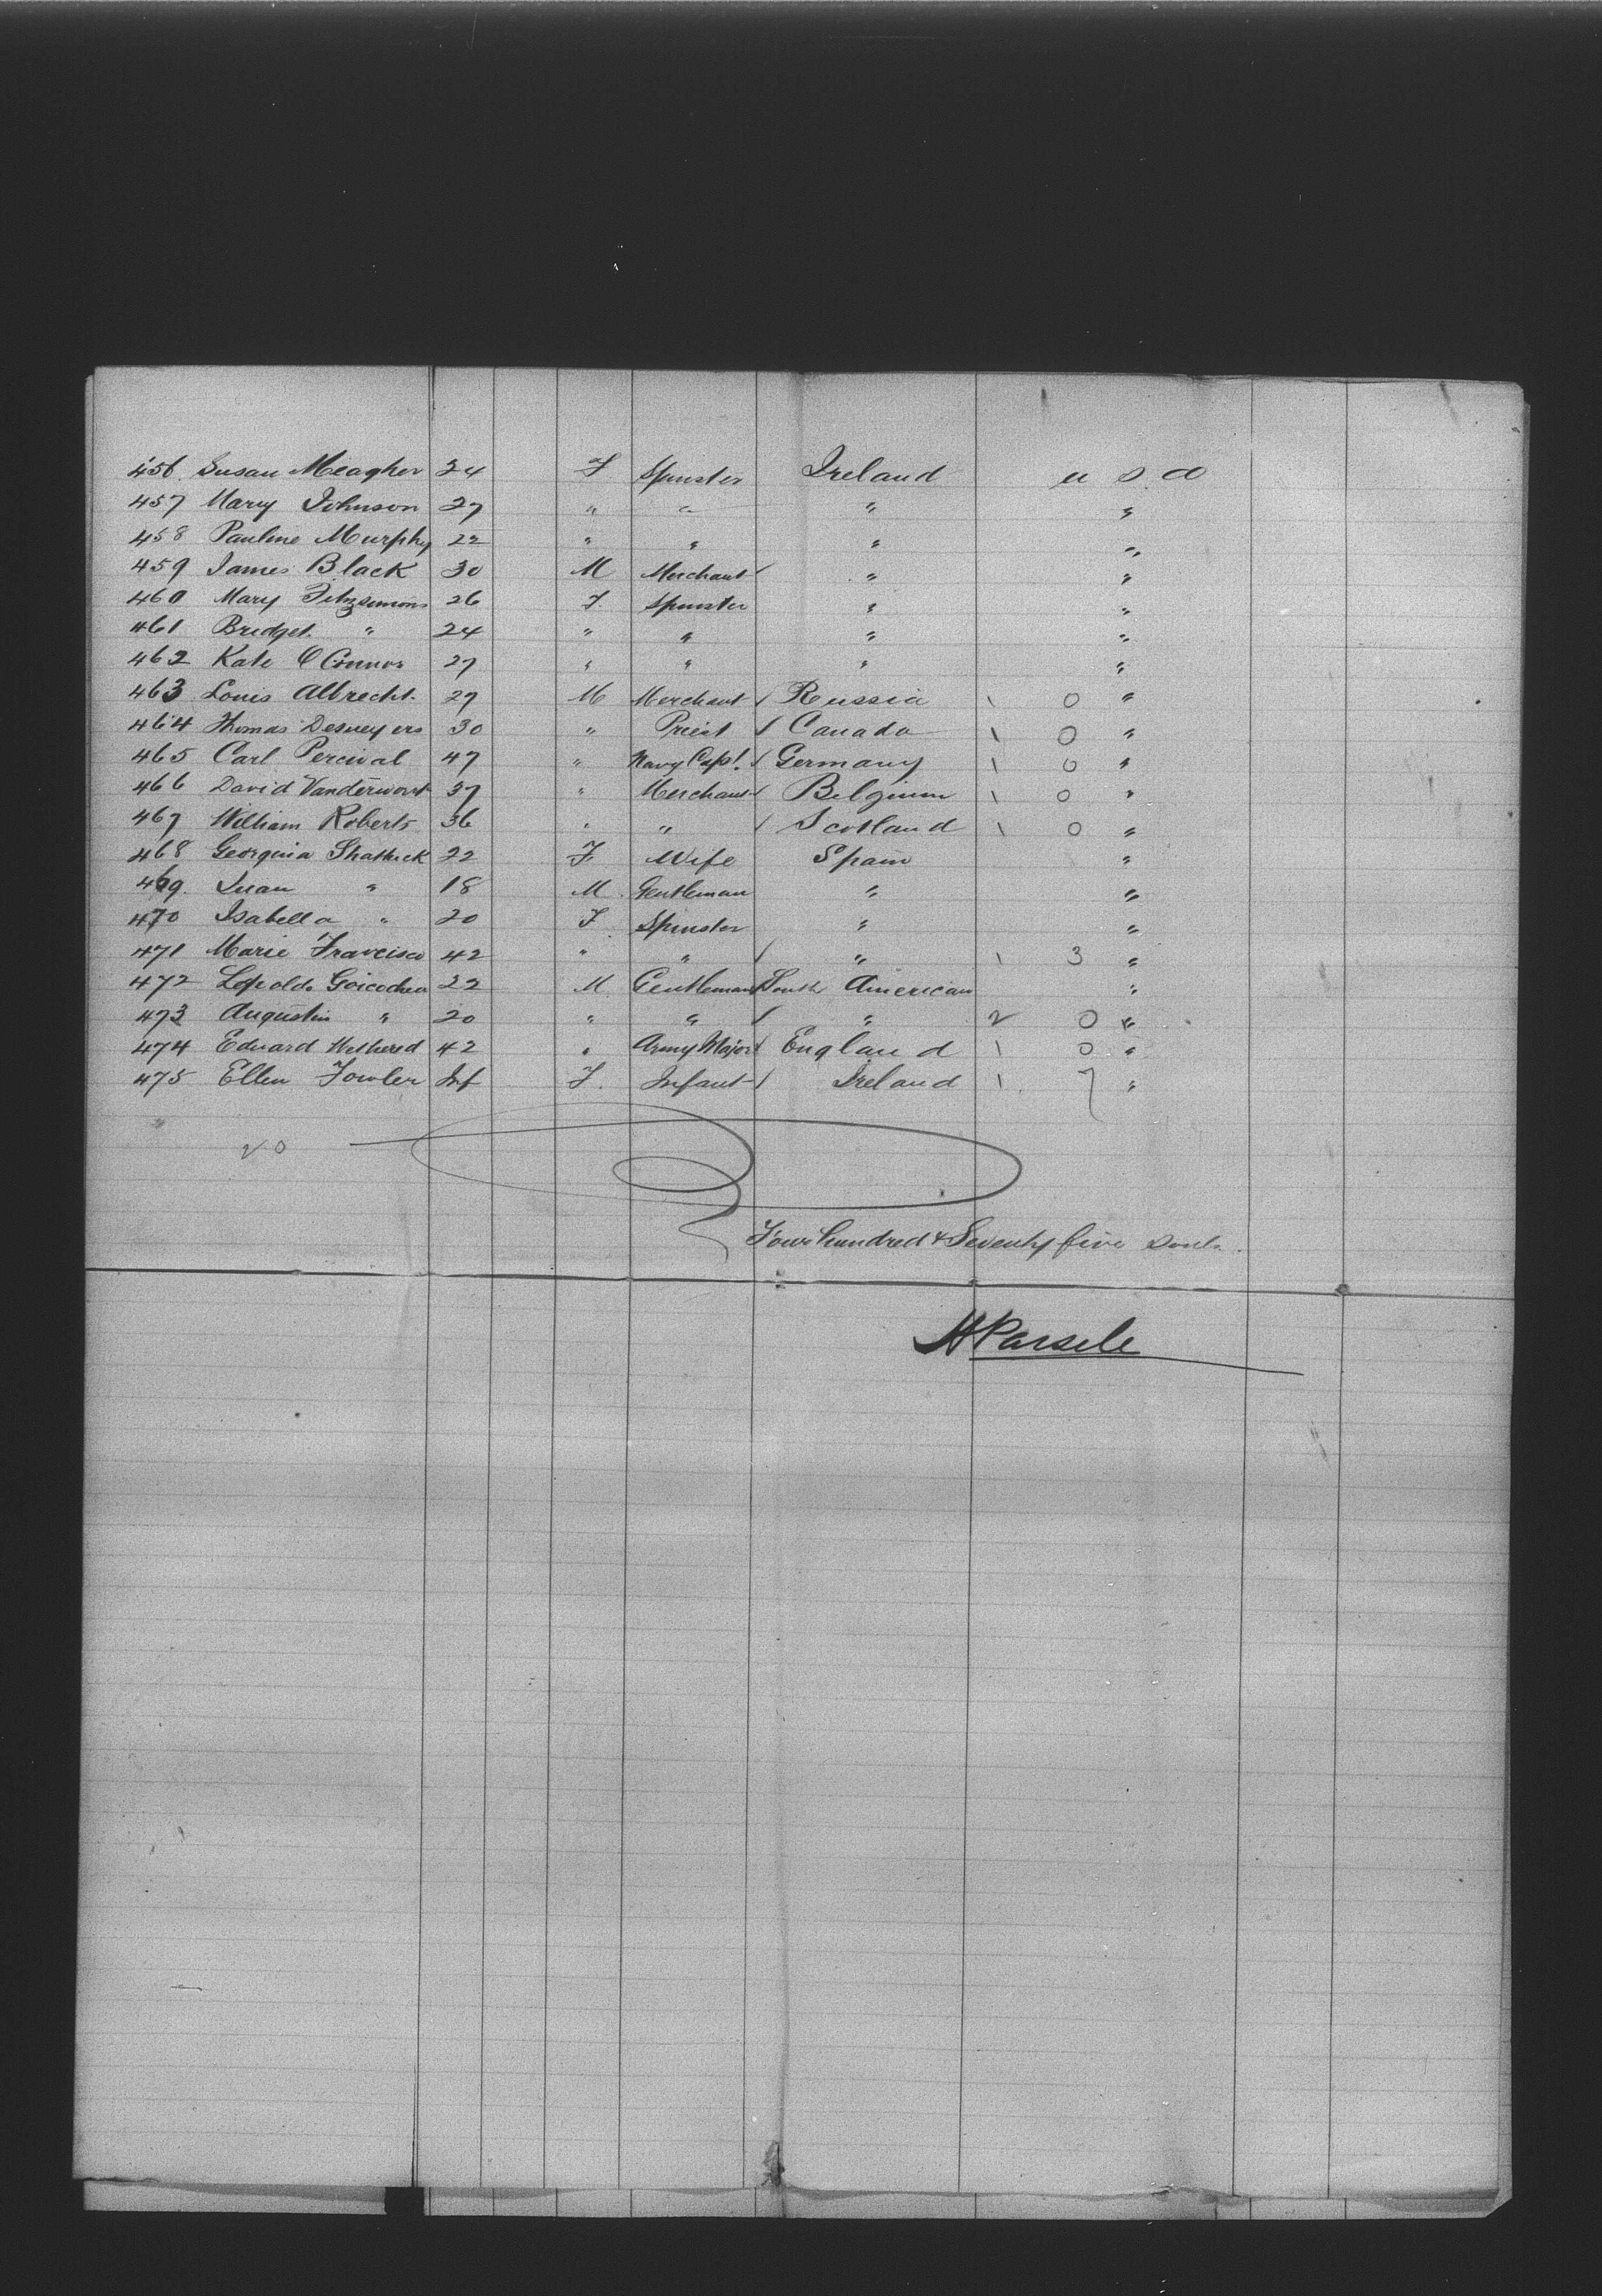 456 Susan Meagher 24 F Spinster Ireland U S A
457 Mary Johnson 27 " " " "
458 Pauline Murphy 22 " " " "
459 James Black 30 M Merchant " "
460 Mary Fitzsimons 26 F. Spinster " "
461 Bridget " 24 " " " "
462 Kate O'Connor 27 " " " "
463 Louis Albrecht. 27 M Merchant / Russia \ 0 "
464 Thomas 30 " Priest / Canada \ 0 "
465 Carl Percival 47 " Navy Capt. / Germany \ 0 "
466 David 37 " Merchant / Belgium \ 0 "
467 William Roberts 36 " " / Scotland \ 0 "
468 Georgina Shattuck 22 F Wife Spain "
469. Juan " 18 M. Gentleman " "
470 Isabella " 20 F Spinster " "
471 Marie Francisco 42 " " / " \ 3 "
472 Lepoldo Goicochea 22 M Gentleman South American "
473 Augustin " 20 " " / " 2 0 "
474 Edward Wethered 42 " Army Major / England \ 0 "
475 Ellen Fowler Inf F. Infant / Ireland \ 7 "
20
Four hundred & Seventy five Souls.
H Parsele